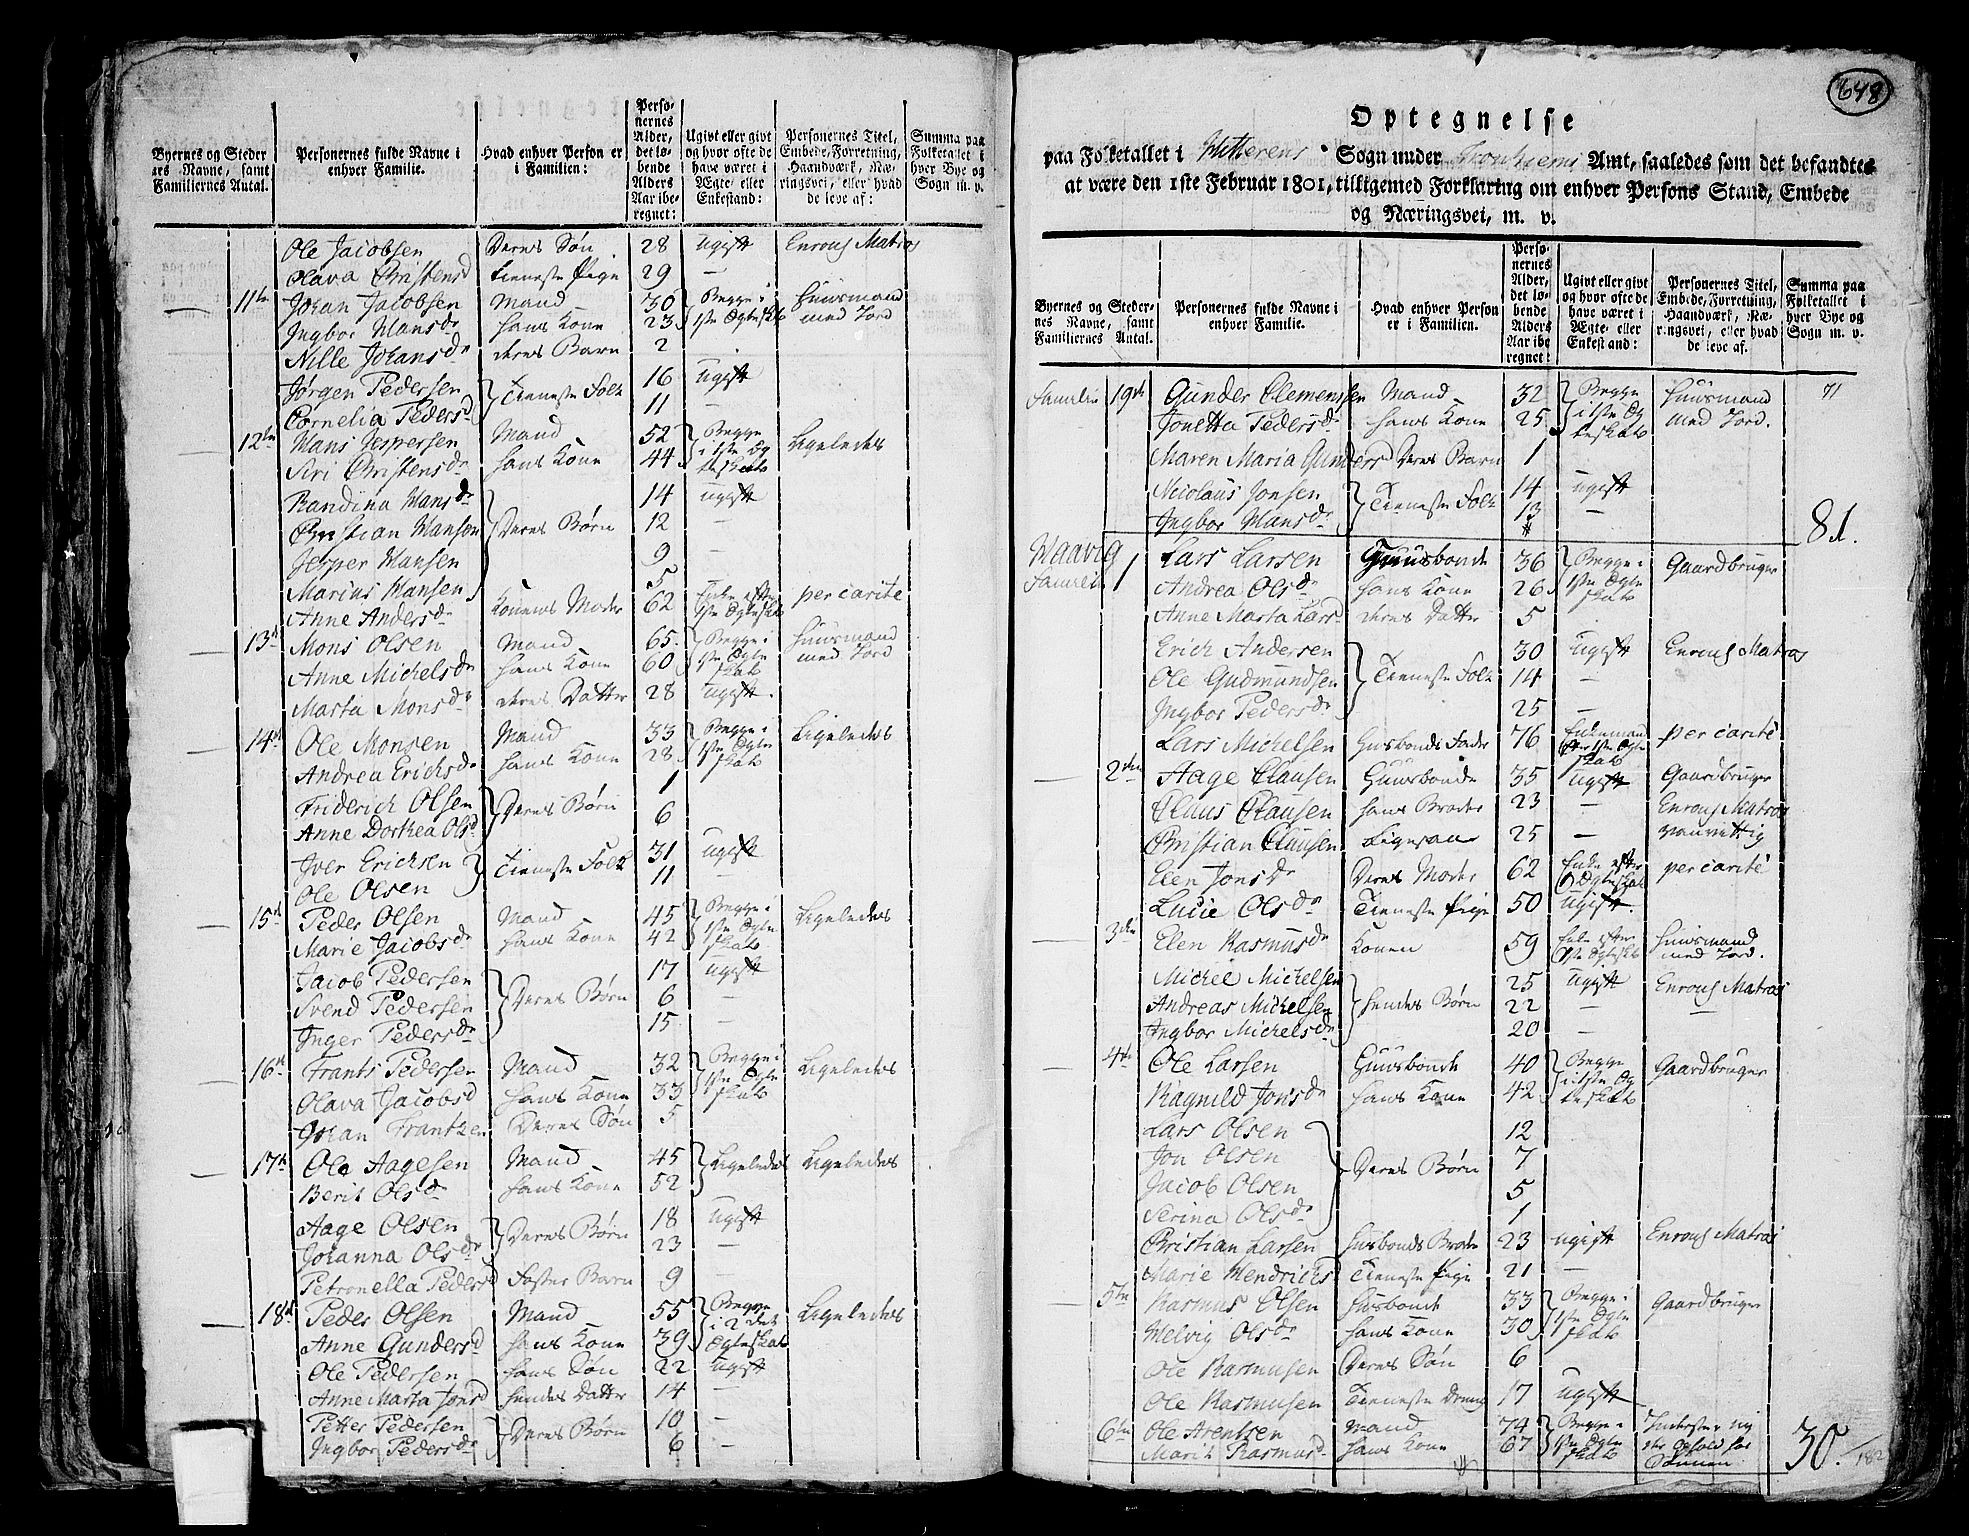 Byernes og Steder
nes Navne, samt
Familiernes Antal.
Personernes fulde Navne i
enhver Familie.
Hvad enhver Person er
i Familien:
Perso-
nernes
Alder,
det lø-
bende
Alders
Aar ibe-
regnet:
Ugivt eller givt
og hvor ofte de
have været i
Ægte- eller
Enkestand:
Personernes Titel,
Embede, Forretning,
Haandværk, Næ-
ringsvei, eller hvad
de leve af:
Summa paa
Folketallet i
hver Bye og
Sogn m. v.
Ole Jacobsen Deres Søn 28 ugift Enroul Matros
Olava Christensd tieneste Pige 29 —
11te Johan Jacobsen Mand 30 Begge i Huusmand
Ingbor Hansdr hans Kone 23 1ste Ægteskab med Jord
Nille Johansdr deres Barn 2
Jørgen Pedersen Tieneste Folk 16 ugift
Cornelia Pedersd 11 —
12te Hans Jespersen Mand 52 Begge Ligeledes
Siri Christensdr hans Kone 44 i 1ste Æg
teskab
Randina Hansdr 14 ugift
Christian Hansen Deres Børn 12 —
Jesper Hansen 9 —
Marius Hansen 5
Anne Andersdr Konens Moder 62 Enke efter 1ste Ægteskab per carité
13d Mons Olsen Mand 65 Begge i Huusmand
Anne Michelsdr hans Kone 60 1ste Ægte med Jord
skab
Marta Monsdr deres Datter 28 ugift
14d Ole Monsen Mand 33 Begge i Ligeledes
Andrea Ericksdr hans Kone 28 1ste Ægte
skab
Friderich Olsen Deres Børn 1
Anne Dorthea Olsd 6
Iver Ericksen Tieneste Folk 31 ugift
Ole Olsen 11 —
15d Peder Olsen Mand 45 Begge i Ligeledes
Marie Jacobsdr hans Kone 42 1ste Ægte
skab
Jacob Pedersen 17 ugift
Svend Pedersen Deres Børn 6 —
Inger Pedersdr 15 —
16d Frants Pedersen Mand 32 Begge i Ligeledes
Olava Jacobsd hans Kone 33 1ste Ægte
skab
Johan Frantzen Deres Søn 5
17d Ole Aagesen Mand 45 Ligeledes Ligeledes
Berit Olsdr hans Kone 52
Aage Olsen Deres Børn 18 ugift
Johanna Olsdr 23 —
Petronella Pedersd Foster Barn 9 —
18d Peder Olsen Mand 55 Begge Ligeledes
Anne Gundersd hans Kone 39 i 2det
Ægteskab
Ole Pedersen hans Søn 22 ugift
Anne Marta Jonsd hendes Datter 14 —
Petter Pedersen Deres Børn 10 —
Ingbor Pedersdr 6 —
648
Optegnelse
paa Folketallet i Hitterens Sogn under Tronhiems Amt, saaledes som det befandtes
at være den 1ste Februar 1801, tilligemed Forklaring om enhver Persons Stand, Embede
og Næringsvei, m. v.
Byernes og Steder-
nes Navne, samt
Familiernes Antal.
Personernes fulde Navne i
enhver Familie.
Hvad enhver Person
er i Familien.
Perso-
nernes
Alder,
det lø-
bende
Alders
Aar ibe-
regnet:
Ugivt eller givt
og hvor ofte de
have været i
Ægte- eller
Enkestand:
Personernes Titel,
Embede, Forretning,
Haandværk, Næ-
ringsvei, eller hvad
de leve af.
Summa paa
Folketallet i
hver Bye og
Sogn m. v.
Familie 19de Gunder Clemensen Mand 32 Begge Huusmand 71
Jonetta Pedersdr hans Kone 25 i 1ste Æg med Jord.
teskab
Maren Maria Gundersd Deres Barn 1
Nicolaus Jonsen Tieneste Folk 14 ugift
Ingbor Hansdr 13 — 81.
Haavig
Familie 1 Lars Larsen Huusbonde 36 Begge i Gaardbruger
Andrea Olsdr hans Kone 26 1ste Ægte
skab
Anne Marta Larsd deres Datter 5
Erich Andersen 30 ugift Enroul Matros
Ole Gudmundsen Tieneste Folk 14 —
Ingbor Pedersdr 25 —
Lars Michelsen Husbonds Fader 76 Enkemand efter 1ste Ægteskab per carité
2den Aage Clausen Huusbonde 35 ugift Gaardbruger
Claus Clausen hans Broder 23 — Enroul Matros
Christian Clausen Ligesaa 25 — vanvittig
Elen Jonsdr Deres Moder 62 Enke efter
Ægteskab per carité
Lucie Olsdr Tieneste Pige 50 ugift.
3die Elen Rasmusdr Konen 59 Enke efter Huusmand
1ste Ægteskab med Jord.
Michel Michelsen 25 ugift Enroul Matros
Andreas Michelsen hendes Børn 22 — —
Ingbor Michelsdr 20 —
4de Ole Larsen Huusbonde 40 Begge Gaardbruger
Ragnild Jonsdr hans Kone 42 i 1ste Æg
teskab
Lars Olsen 12
Jon Olsen Deres Børn 7
Jacob Olsen 5
Serina Olsdr 1
Christian Larsen husbonds Broder 23 ugift Enroul Matros
Marie Hendrichsd Tieneste Pige 21 —
5te Rasmus Olsen Husbonde 33 Begge i Gaardbruger
Helvig Olsdr hans Kone 30 1ste Ægte
skab
Ole Rasmusen Deres Søn 6
Ole Rasmusen Tieneste Dreng 17 ugift
6te Ole Arentsen Mand 74 Begge i
Marit Rasmusd hans Kone 67 1ste Ægte
skab Sønnen 30.
182